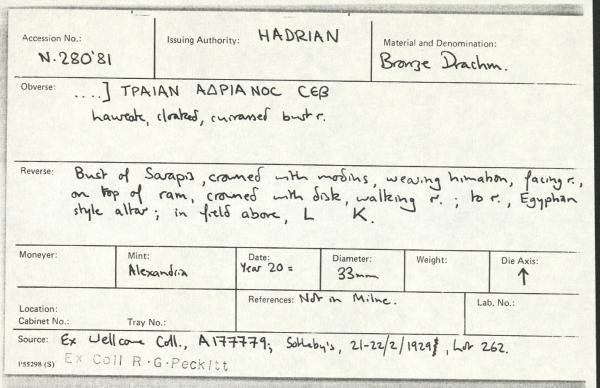 Accession No.:
N.280'81
Issuing Authority: HADRIAN
Material and Denomination:
Bronze Drachm.
Obverse: ....] ΤΡΑΙΑΝ ΑΔΡΙΑΝΟC CЄΒ
laureate, cloaked, cuirassed bust r.
Reverse: Bust of Sarapis, crowned with modius, wearing himation, facing r.,
on top of ram, crowned with disk, walking r. ; to r., Egyptian
style altar ; in field above, L K.
Moneyer:
Mint:
Alexandria
Date:
Year 20 =
Diameter:
33mm
Weight:
Die Axis:
↑
Location:
Cabinet No.: Tray No.:
References: Not in Milne.
Lab. No.:
Source: Ex Wellcome Coll., A177779; Sotheby's, 21-22/2/1929, Lot 262.
P55298 (S) Ex Coll R.G.Peckitt